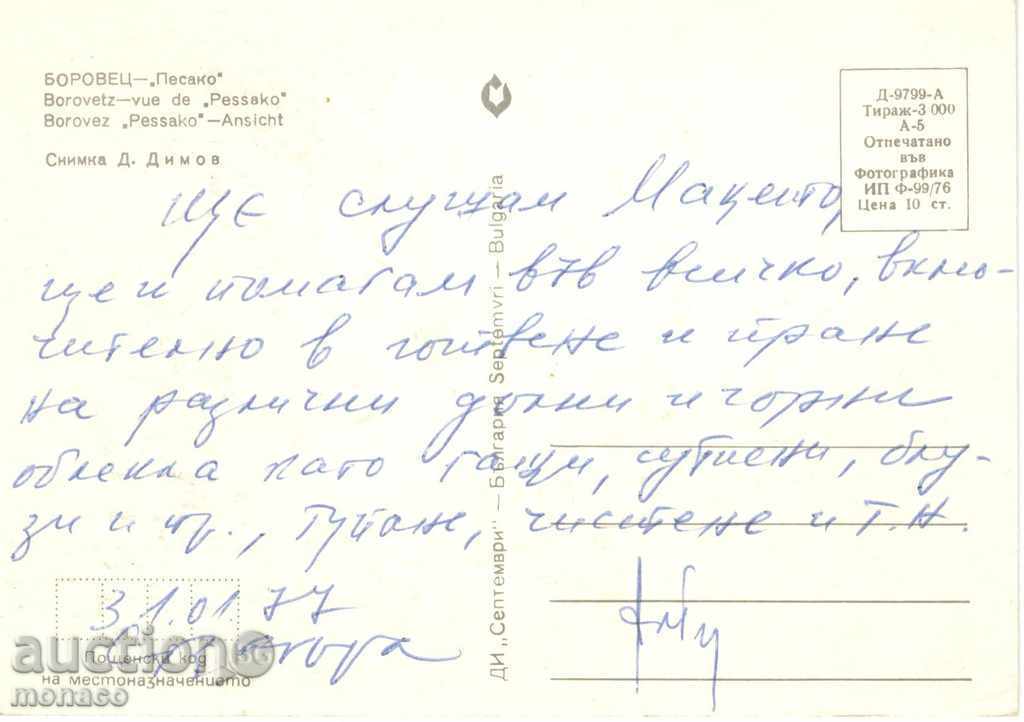 БОРОВЕЦ—„Песако"
Borovetz—vue de „Pessako"
Borovez „Pessako"—Ansicht
Снимка Д. Димов
Д-9799-А
Тираж-3 000
А-5
Отпечатано
във
Фотографика
ИП Ф-99/76
Цена 10 ст.
Ще слушам
ще и помагам във всичко, вклю-
чително в готвене и пране
на различни долни и горни
облекла като гащи, сутиени, блу-
зи и пр., тупане, чистене и т.н.
31.01.77
Пощенски код
на местоназначението
ДИ „Септември" — България Septemvri — Bulgaria
auction
monaco